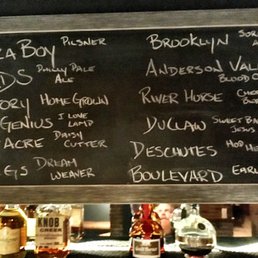 KA BOY PILSNER
DS PHILLY PALE ALE
ORY HOME GROWN
GENIUS I LOVE LAMP
ACRE DAISY CUTTER
GS DREAM WEAVER
BROOKLYN SOR
ANDERSON VAL BLOOD
RIVER HORSE
DUCLAW SWEET BA JESUS
DESCHUTES HOP HE
BOULEVARD EARL
KNOB CREEK